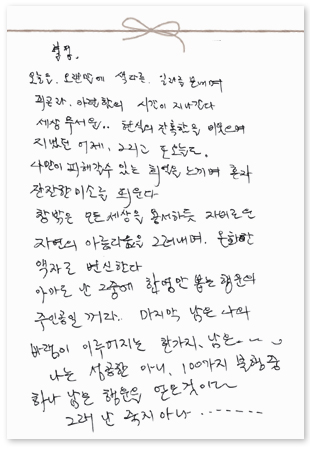 열정.
오늘은. 오랜만에 색다른. 일과를 보내며
피곤과. 아련함의 시간이 지나간다
세상 무서운.. 현실의 잔혹함을 비웃으며
지냈던 어제, 그리고 또 오늘도.
나만이 피해갈수 있는 희열을 느끼며 혼자
잔잔한 미소를 띄운다
창밖은 모든 세상을 용서하듯 자비로운
자연의 아름다움을 그려내며. 온화한
액자로 변신한다
아마도 난 그중에 한 명만 뽑는 행운의
주인공일 꺼라.. 마지막 남은 나의
바램이 이루어지는 한가지, 남은~
나는 성공한 아니, 100가지 불행 중
하나 남은 행운을 얻은것이다
그래 난 죽지 아나 -------